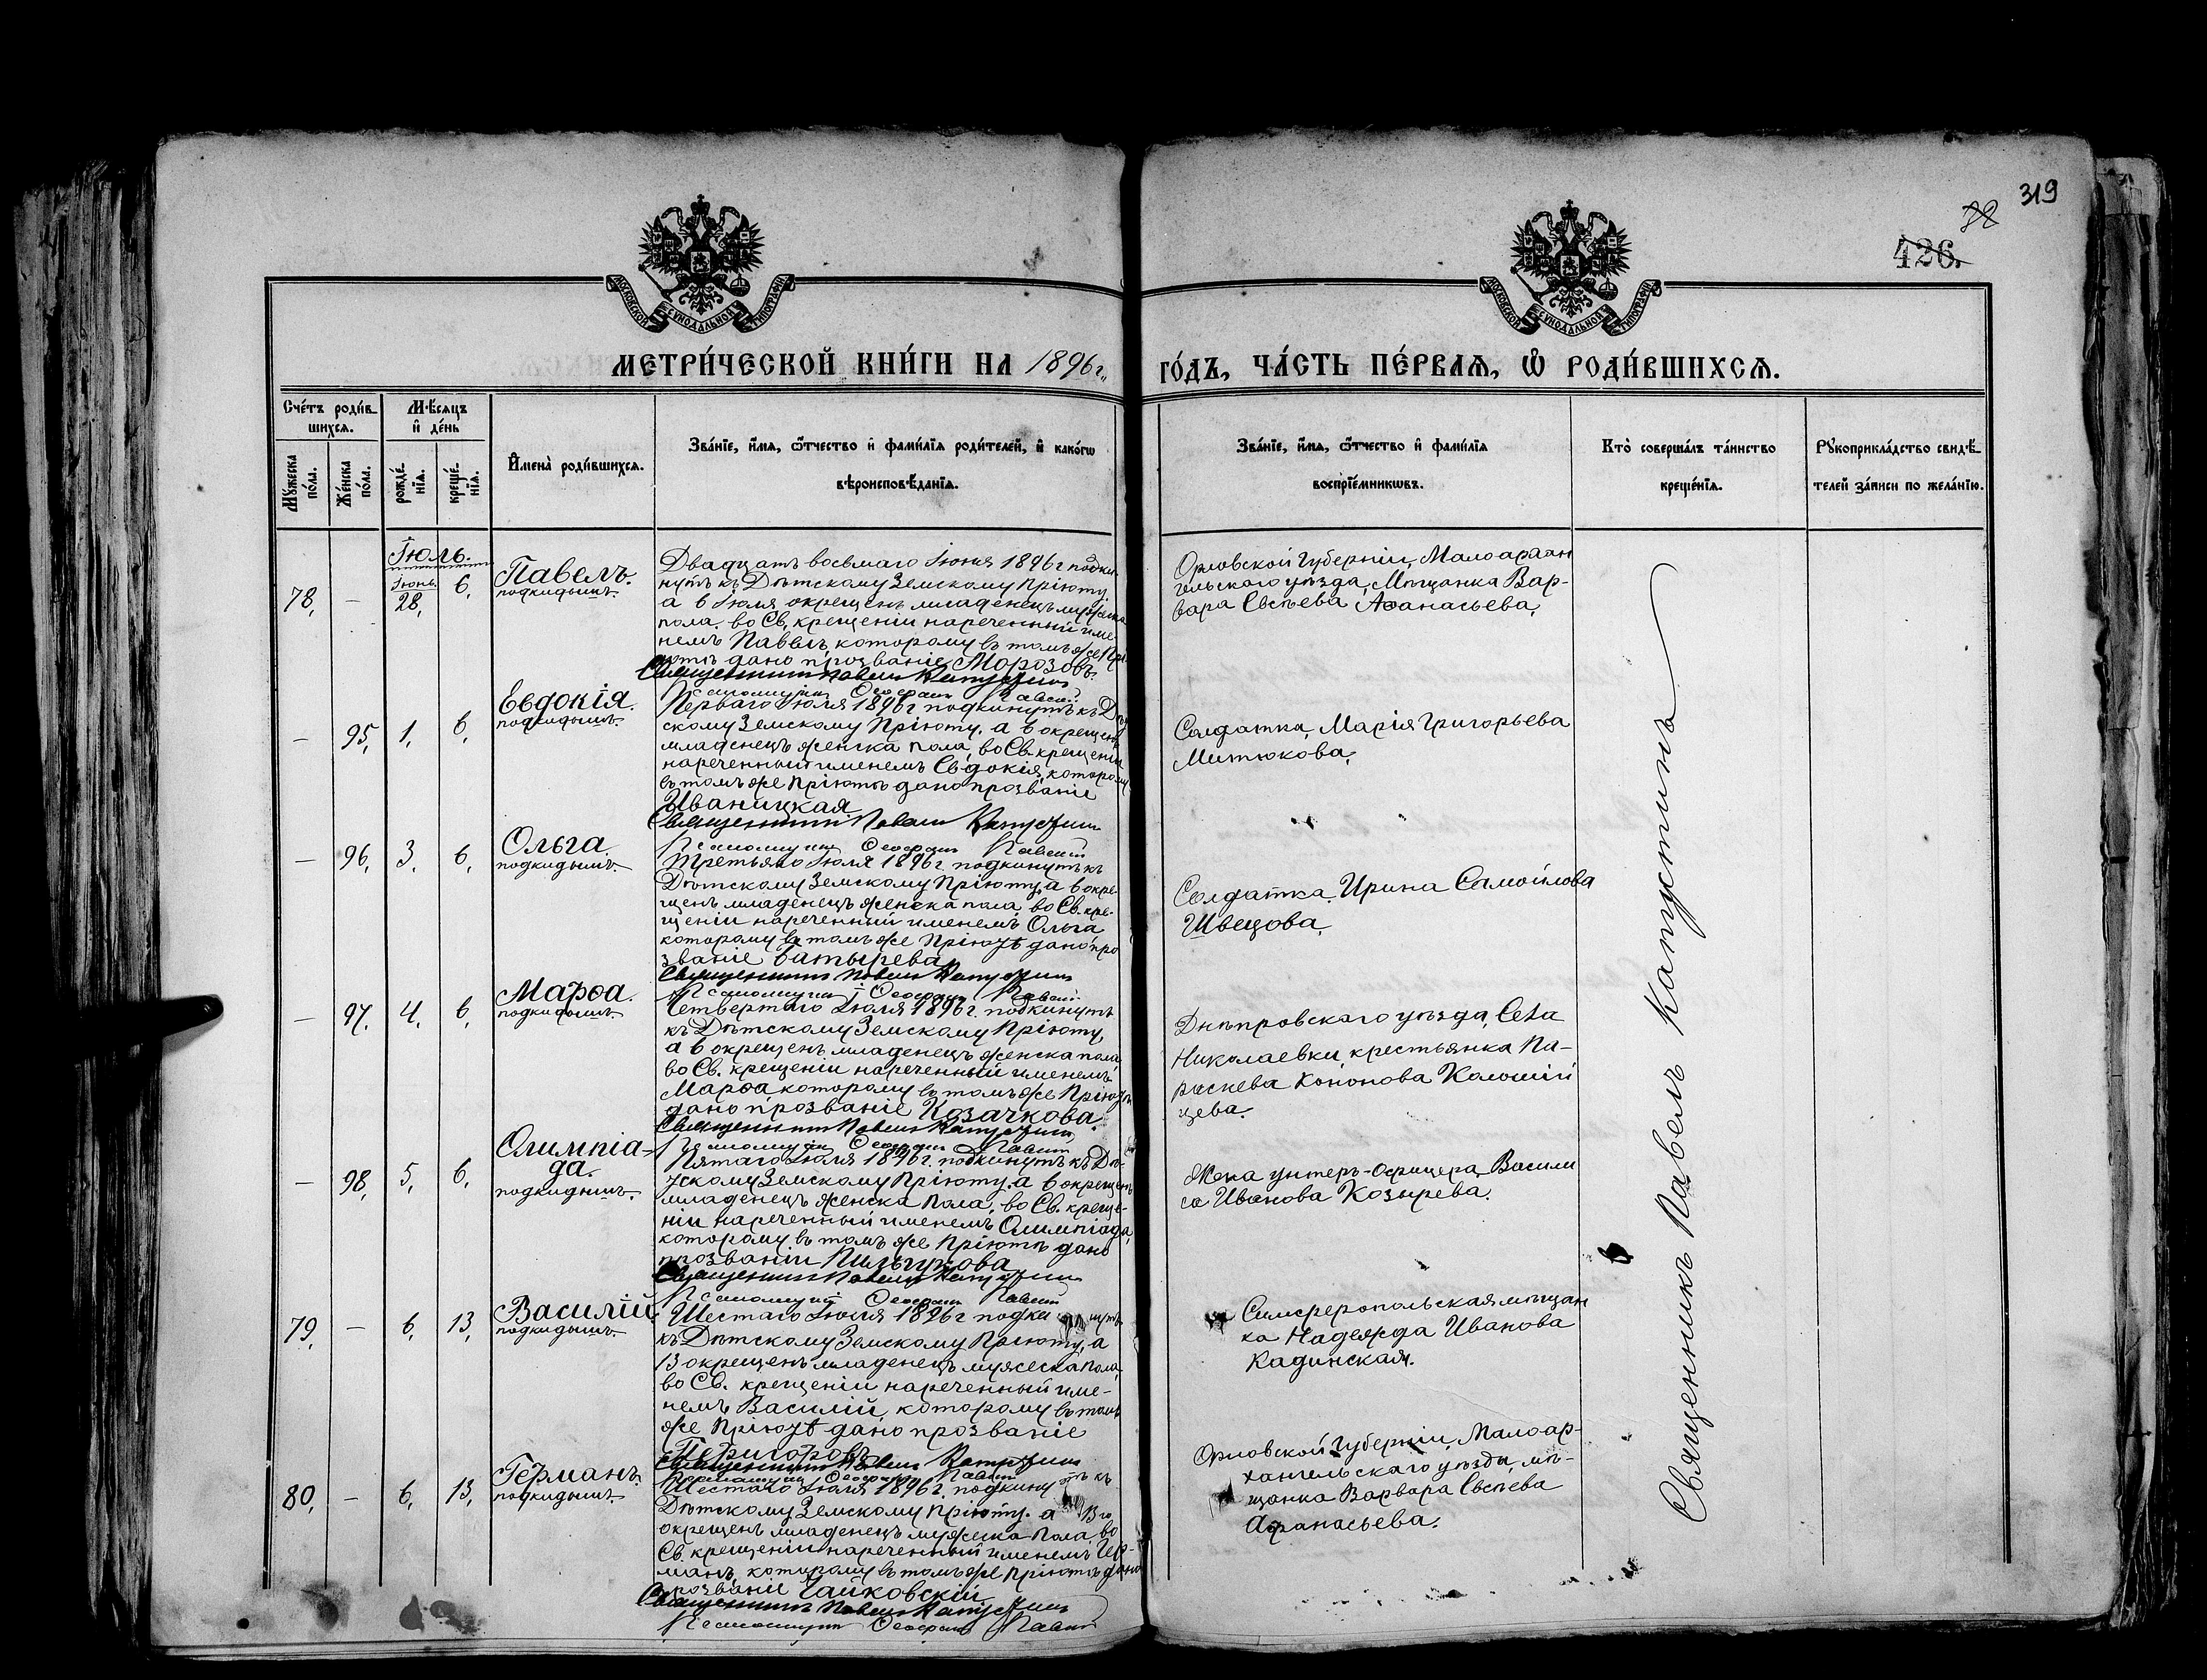 319
32
426.
МОСКОВСКОЙ СѴНОДАЛЬНОЙ ТИПОГРАФІИ
МОСКОВСКОЙ СѴНОДАЛЬНОЙ ТИПОГРАФІИ
МЕТРИ́ЧЕСКОЙ КНИ́ГИ НА 1896 г. ГО́ДЪ, ЧА́СТЬ ПЕ́РВАѦ, Ѽ РОДИ́ВШИХСѦ.
Сче́тъ роди́в-
шихсѧ.
Мѣ́сѧцъ
и҆ де́нь
Мꙋ́жеска по́ла.
Же́нска по́ла.
рожде́нїѧ.
креще́нїѧ.
И҆мена̀ роди́вшихсѧ.
Зва́нїе, и҆́мѧ, ѻ҆́тчество и҆ фами́лїѧ роди́телей, и҆ како́гѡ
вѣроисповѣ́данїѧ.
Зва́нїе, и҆́мѧ, ѻ҆́тчество и҆ фами́лїѧ
воспрїе́мникѡвъ.
Кто̀ соверша́лъ та́инство
креще́нїѧ.
Рꙋкоприкла́дство свидѣ́-
телей за́писи по жела́нїю.
Іюль.
78, – Іюнь 28, 6,
Павелъ.
подкидышъ.
Двадцать восьмаго Іюня 1896 г подки
нутъ къ Дѣтскому Земскому Пріюту,
а 6 Іюля окрещенъ младенецъ мужеска
пола. во Св. крещеніи нареченный име
немъ Павелъ, которому въ томъ же Прі
ютѣ дано прозваніе Морозовъ.
Священникъ Павелъ Капустинъ
Псаломщикъ Ѳеофанъ
Орловской Губерніи, Малоархан
гельскаго уѣзда, Мѣщанка Вар-
вара Евсѣева Аѳанасьева,
– 95, 1, 6,
Евдокія.
подкидышъ.
Перваго Іюля 1896 г подкинутъ къ Дѣт
скому Земскому Пріюту, а 6 окрещенъ
младенецъ женска пола, во Св. крещеніи
нареченный именемъ Евдокія, которому
въ томъ же Пріютѣ дано прозваніе
Иваницкая
Священникъ Павелъ Капустинъ
Псаломщикъ Ѳеофанъ
Солдатка, Марія Григорьева
Митюкова,
– 96, 3, 6,
Ольга.
подкидышъ.
Третьяго Іюля 1896 г подкинутъ къ
Дѣтскому Земскому Пріюту, а 6 окре-
щенъ младенецъ женска пола, во Св. кре-
щеніи нареченный именемъ Ольга
которому въ томъ же Пріютѣ дано про
званіе Батырева
Священникъ Павелъ Капустинъ
Псаломщикъ Ѳеофанъ
Солдатка, Ирина Самойлова
Швецова,
– 97, 4, 6,
Марѳа.
подкидышъ.
Четвертаго Іюля 1896 г. подкинутъ
къ Дѣтскому Земскому Пріюту,
а 6 окрещенъ младенецъ женска пола,
во Св. крещеніи нареченный именемъ
Марѳа которому въ томъ же Пріютѣ
дано прозваніе Козачкова.
Священникъ Павелъ Капустинъ
Псаломщикъ Ѳеофанъ
Днѣпровскаго уѣзда, Села
Николаевки крестьянка Па-
раскева Кононова Коломій
цева.
– 98, 5, 6,
Олимпіа-
да.
подкидышъ.
Пятаго Іюля 1896 г. подкинутъ къ Дѣ-
тскому Земскому Пріюту. а 6 окрещенъ
младенецъ женска пола, во Св. креще-
ніи нареченный именемъ Олимпіада,
которому въ томъ же Пріютѣ дано
прозваніи Пильгунова
Священникъ Павелъ Капустинъ
Псаломщикъ Ѳеофанъ
Жена унтеръ-офицера Васили
са Иванова Козырева.
79, – 6, 13,
Василій
подкидышъ.
Шестаго Іюля 1896 г подкинутъ
къ Дѣтскому Земскому Пріюту, а
13 окрещенъ младенецъ мужеска пола,
во Св. крещеніи нареченный име-
немъ Василій, которому въ томъ
же Пріютѣ дано прозваніе
Священникъ Павелъ Капустинъ
Псаломщикъ Ѳеофанъ
Симферопольская мѣщан
ка Надежда Иванова
Кадинская.
80, – 6, 13,
Германъ.
подкидышъ.
Шестаго Іюля 1896 г. подкинутъ къ
Дѣтскому Земскому Пріюту. а 13го
окрещенъ младенецъ мужеска пола, во
Св. крещеніи нареченный именемъ Гер-
манъ, которому въ томъ же Пріютѣ дано
прозваніе Чайковскій
Священникъ Павелъ Капустинъ
Псаломщикъ Ѳеофанъ
Орловской Губерніи, Малоар-
хангельскаго уѣзда, мѣ-
щанка Варвара Евсѣева
Афанасьева.
Священникъ Павелъ Капустинъ